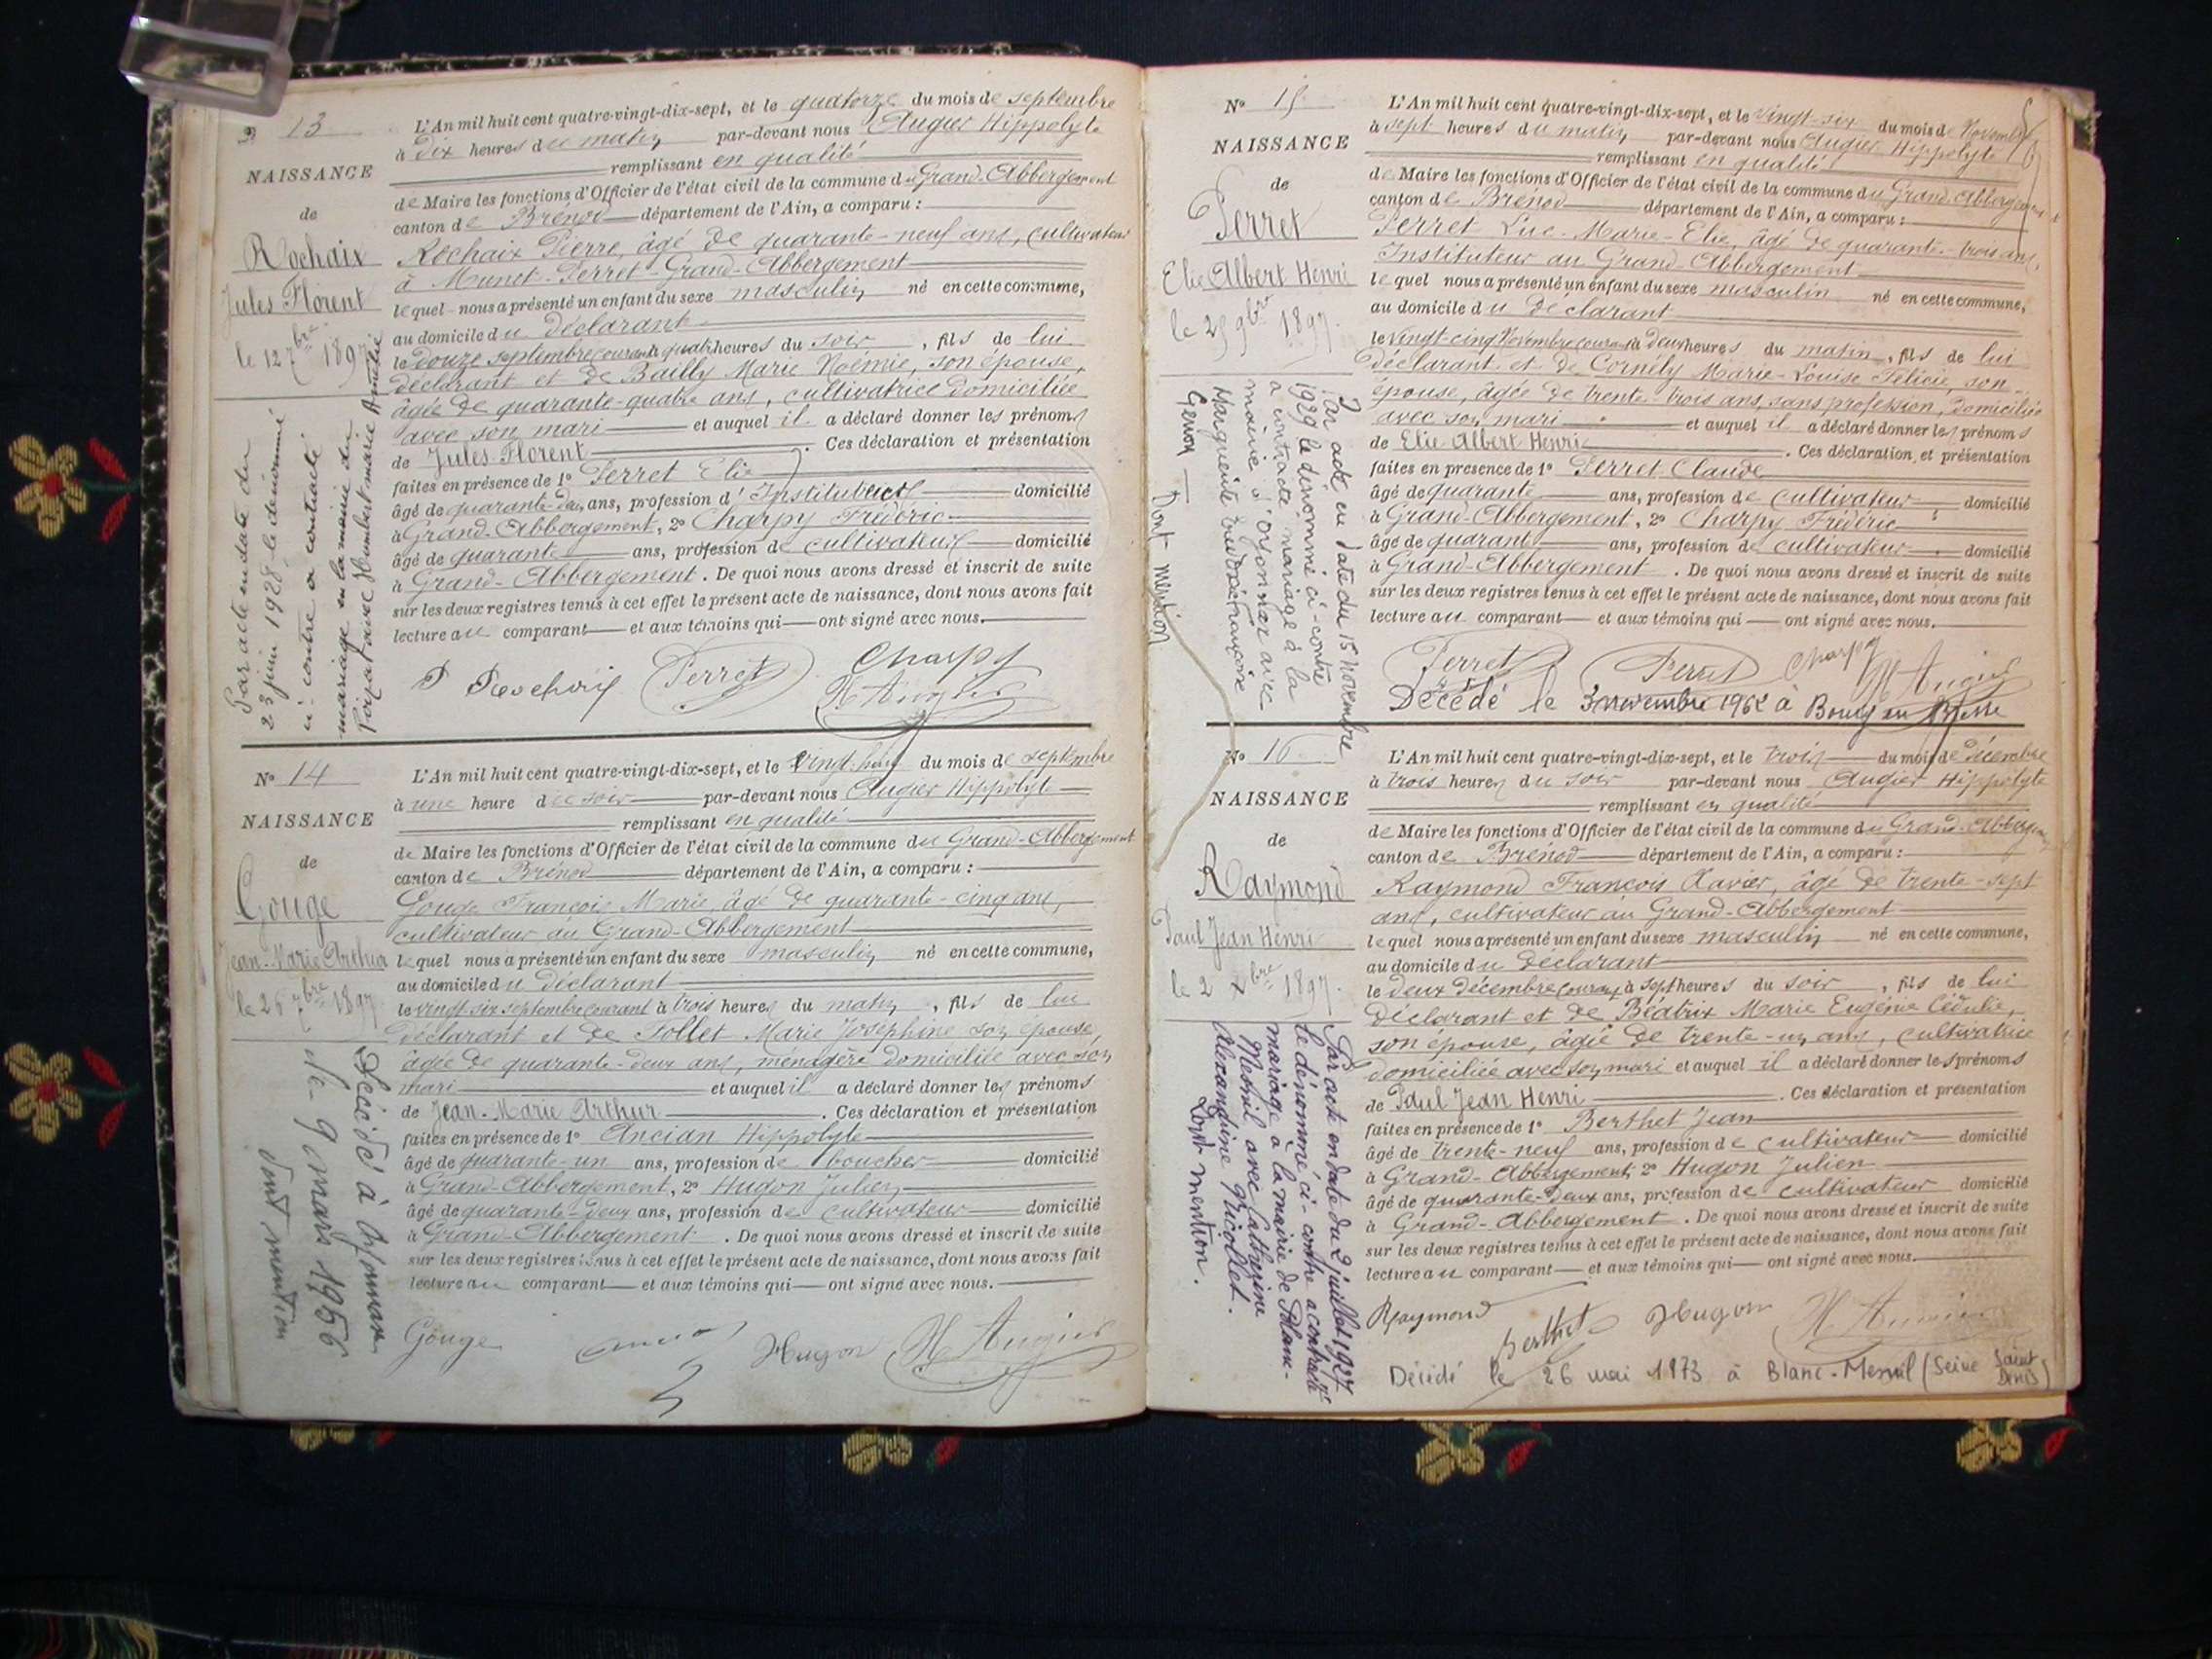 N° 13
NAISSANCE
de
Rochaix
Jules Florent
le 12 7bre 1897
Par acte en date du
23 juin 1928 le dénommé
ci-contre a contracté
mariage en la mairie du
avec Humbert Marie Amélie
L'An mil huit cent quatre-vingt-dix-sept, et le quatorze du mois de septembre
à dix heures du matin par-devant nous Augier Hippolyte
remplissant en qualité
de Maire les fonctions d'Officier de l'état civil de la commune du Grand-Abbergement
canton de Brénod département de l'Ain, a comparu :
Rochaix Pierre, âgé de quarante-neuf ans, cultivateur
à Munet-Perret-Grand-Abbergement
lequel nous a présenté un enfant du sexe masculin né en cette commune,
au domicile du déclarant
le douze septembre courant à quatre heures du soir, fils de lui
déclarant et de Bailly Marie Noémie, son épouse,
âgée de quarante-quatre ans, cultivatrice domiciliée
avec son mari et auquel il a déclaré donner les prénoms
de Jules Florent. Ces déclaration et présentation
faites en présence de 1° Perret Elie
âgé de quarante-deux ans, profession d'Instituteur domicilié
à Grand-Abbergement, 2° Charpy Frédéric
âgé de quarante ans, profession de cultivateur domicilié
à Grand-Abbergement. De quoi nous avons dressé et inscrit de suite
sur les deux registres tenus à cet effet le présent acte de naissance, dont nous avons fait
lecture au comparant et aux témoins qui ont signé avec nous.
P Rochaix Perret Charpy
H Augier
N° 14
NAISSANCE
de
Gouge
Jean-Marie Arthur
le 26 7bre 1897
Décédé à Oyonnax
le 9 mars 1956
Dont mention
L'An mil huit cent quatre-vingt-dix-sept, et le vingt-huit du mois de septembre
à une heure du soir par-devant nous Augier Hippolyte
remplissant en qualité
de Maire les fonctions d'Officier de l'état civil de la commune du Grand-Abbergement
canton de Brénod département de l'Ain, a comparu :
Gouge François Marie, âgé de quarante-cinq ans,
cultivateur au Grand-Abbergement
lequel nous a présenté un enfant du sexe masculin né en cette commune,
au domicile du déclarant
le vingt-six septembre courant à trois heures du matin, fils de lui
déclarant et de Tollet Marie Joséphine son épouse,
âgée de quarante-deux ans, ménagère domiciliée avec son
mari et auquel il a déclaré donner les prénoms
de Jean-Marie Arthur. Ces déclaration et présentation
faites en présence de 1° Ancian Hippolyte
âgé de quarante-un ans, profession de boucher domicilié
à Grand-Abbergement, 2° Hugon Julien
âgé de quarante-deux ans, profession de cultivateur domicilié
à Grand-Abbergement. De quoi nous avons dressé et inscrit de suite
sur les deux registres tenus à cet effet le présent acte de naissance, dont nous avons fait
lecture au comparant et aux témoins qui ont signé avec nous.
Gouge Hugon H Augier
N° 15
NAISSANCE
de
Perret
Elie Albert Henri
le 25 9bre 1897
Par acte en date du 15 novembre
1929 le dénommé ci-contre
a contracté mariage à la
mairie d'Oyonnax avec
Marguerite Françoise
Genon - Dont mention
L'An mil huit cent quatre-vingt-dix-sept, et le vingt-six du mois de Novembre
à sept heures du matin par-devant nous Augier Hippolyte
remplissant en qualité
de Maire les fonctions d'Officier de l'état civil de la commune du Grand-Abbergement
canton de Brénod département de l'Ain, a comparu :
Perret Luc-Marie-Elie, âgé de quarante-trois ans,
Instituteur au Grand-Abbergement
lequel nous a présenté un enfant du sexe masculin né en cette commune,
au domicile du déclarant
le vingt-cinq Novembre courant à deux heures du matin, fils de lui
déclarant et de Cornély Marie-Louise Félicie, son
épouse, âgée de trente-trois ans, sans profession, domiciliée
avec son mari et auquel il a déclaré donner les prénoms
de Elie Albert Henri. Ces déclaration et présentation
faites en présence de 1° Perret Claude
âgé de quarante ans, profession de cultivateur domicilié
à Grand-Abbergement, 2° Charpy Frédéric
âgé de quarante ans, profession de cultivateur domicilié
à Grand-Abbergement. De quoi nous avons dressé et inscrit de suite
sur les deux registres tenus à cet effet le présent acte de naissance, dont nous avons fait
lecture au comparant et aux témoins qui ont signé avec nous.
Perret Perret Charpy H Augier
Décédé le 3 novembre 1962 à Bourg en Bresse
N° 16
NAISSANCE
de
Raymond
Paul Jean Henri
le 2 Xbre 1897
Par acte en date du 2 juillet 1927
le dénommé ci-contre a contracté
mariage à la mairie de Blanc-
Mesnil avec Catherine
Alexandrine Nicollet.
Dont mention.
L'An mil huit cent quatre-vingt-dix-sept, et le trois du mois de décembre
à trois heures du soir par-devant nous Augier Hippolyte
remplissant en qualité
de Maire les fonctions d'Officier de l'état civil de la commune du Grand-Abbergement
canton de Brénod département de l'Ain, a comparu :
Raymond François Xavier, âgé de trente-sept
ans, cultivateur au Grand-Abbergement
lequel nous a présenté un enfant du sexe masculin né en cette commune,
au domicile du déclarant
le deux décembre courant à sept heures du soir, fils de lui
déclarant et de Béatrix Marie Eugénie Cédulie,
son épouse, âgée de trente-un ans, cultivatrice
domiciliée avec son mari et auquel il a déclaré donner les prénoms
de Paul Jean Henri. Ces déclaration et présentation
faites en présence de 1° Berthet Jean
âgé de trente-neuf ans, profession de cultivateur domicilié
à Grand-Abbergement, 2° Hugon Julien
âgé de quarante-deux ans, profession de cultivateur domicilié
à Grand-Abbergement. De quoi nous avons dressé et inscrit de suite
sur les deux registres tenus à cet effet le présent acte de naissance, dont nous avons fait
lecture au comparant et aux témoins qui ont signé avec nous.
Raymond Berthet Hugon H. Augier
Décédé le 26 mai 1973 à Blanc-Mesnil (Seine Saint Denis)